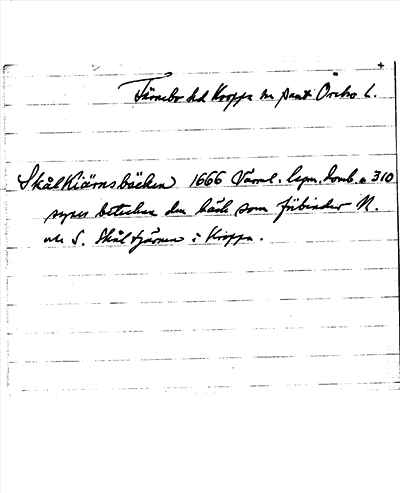 +
Färnebo hd Kroppa sn samt Örebro L.
Skål Kiärnsbäcken 1666 Värml. lagm. domb. a 310
synes beteckna den bäck som förbinder N.
och S. Skåltjärnen i Kroppa.